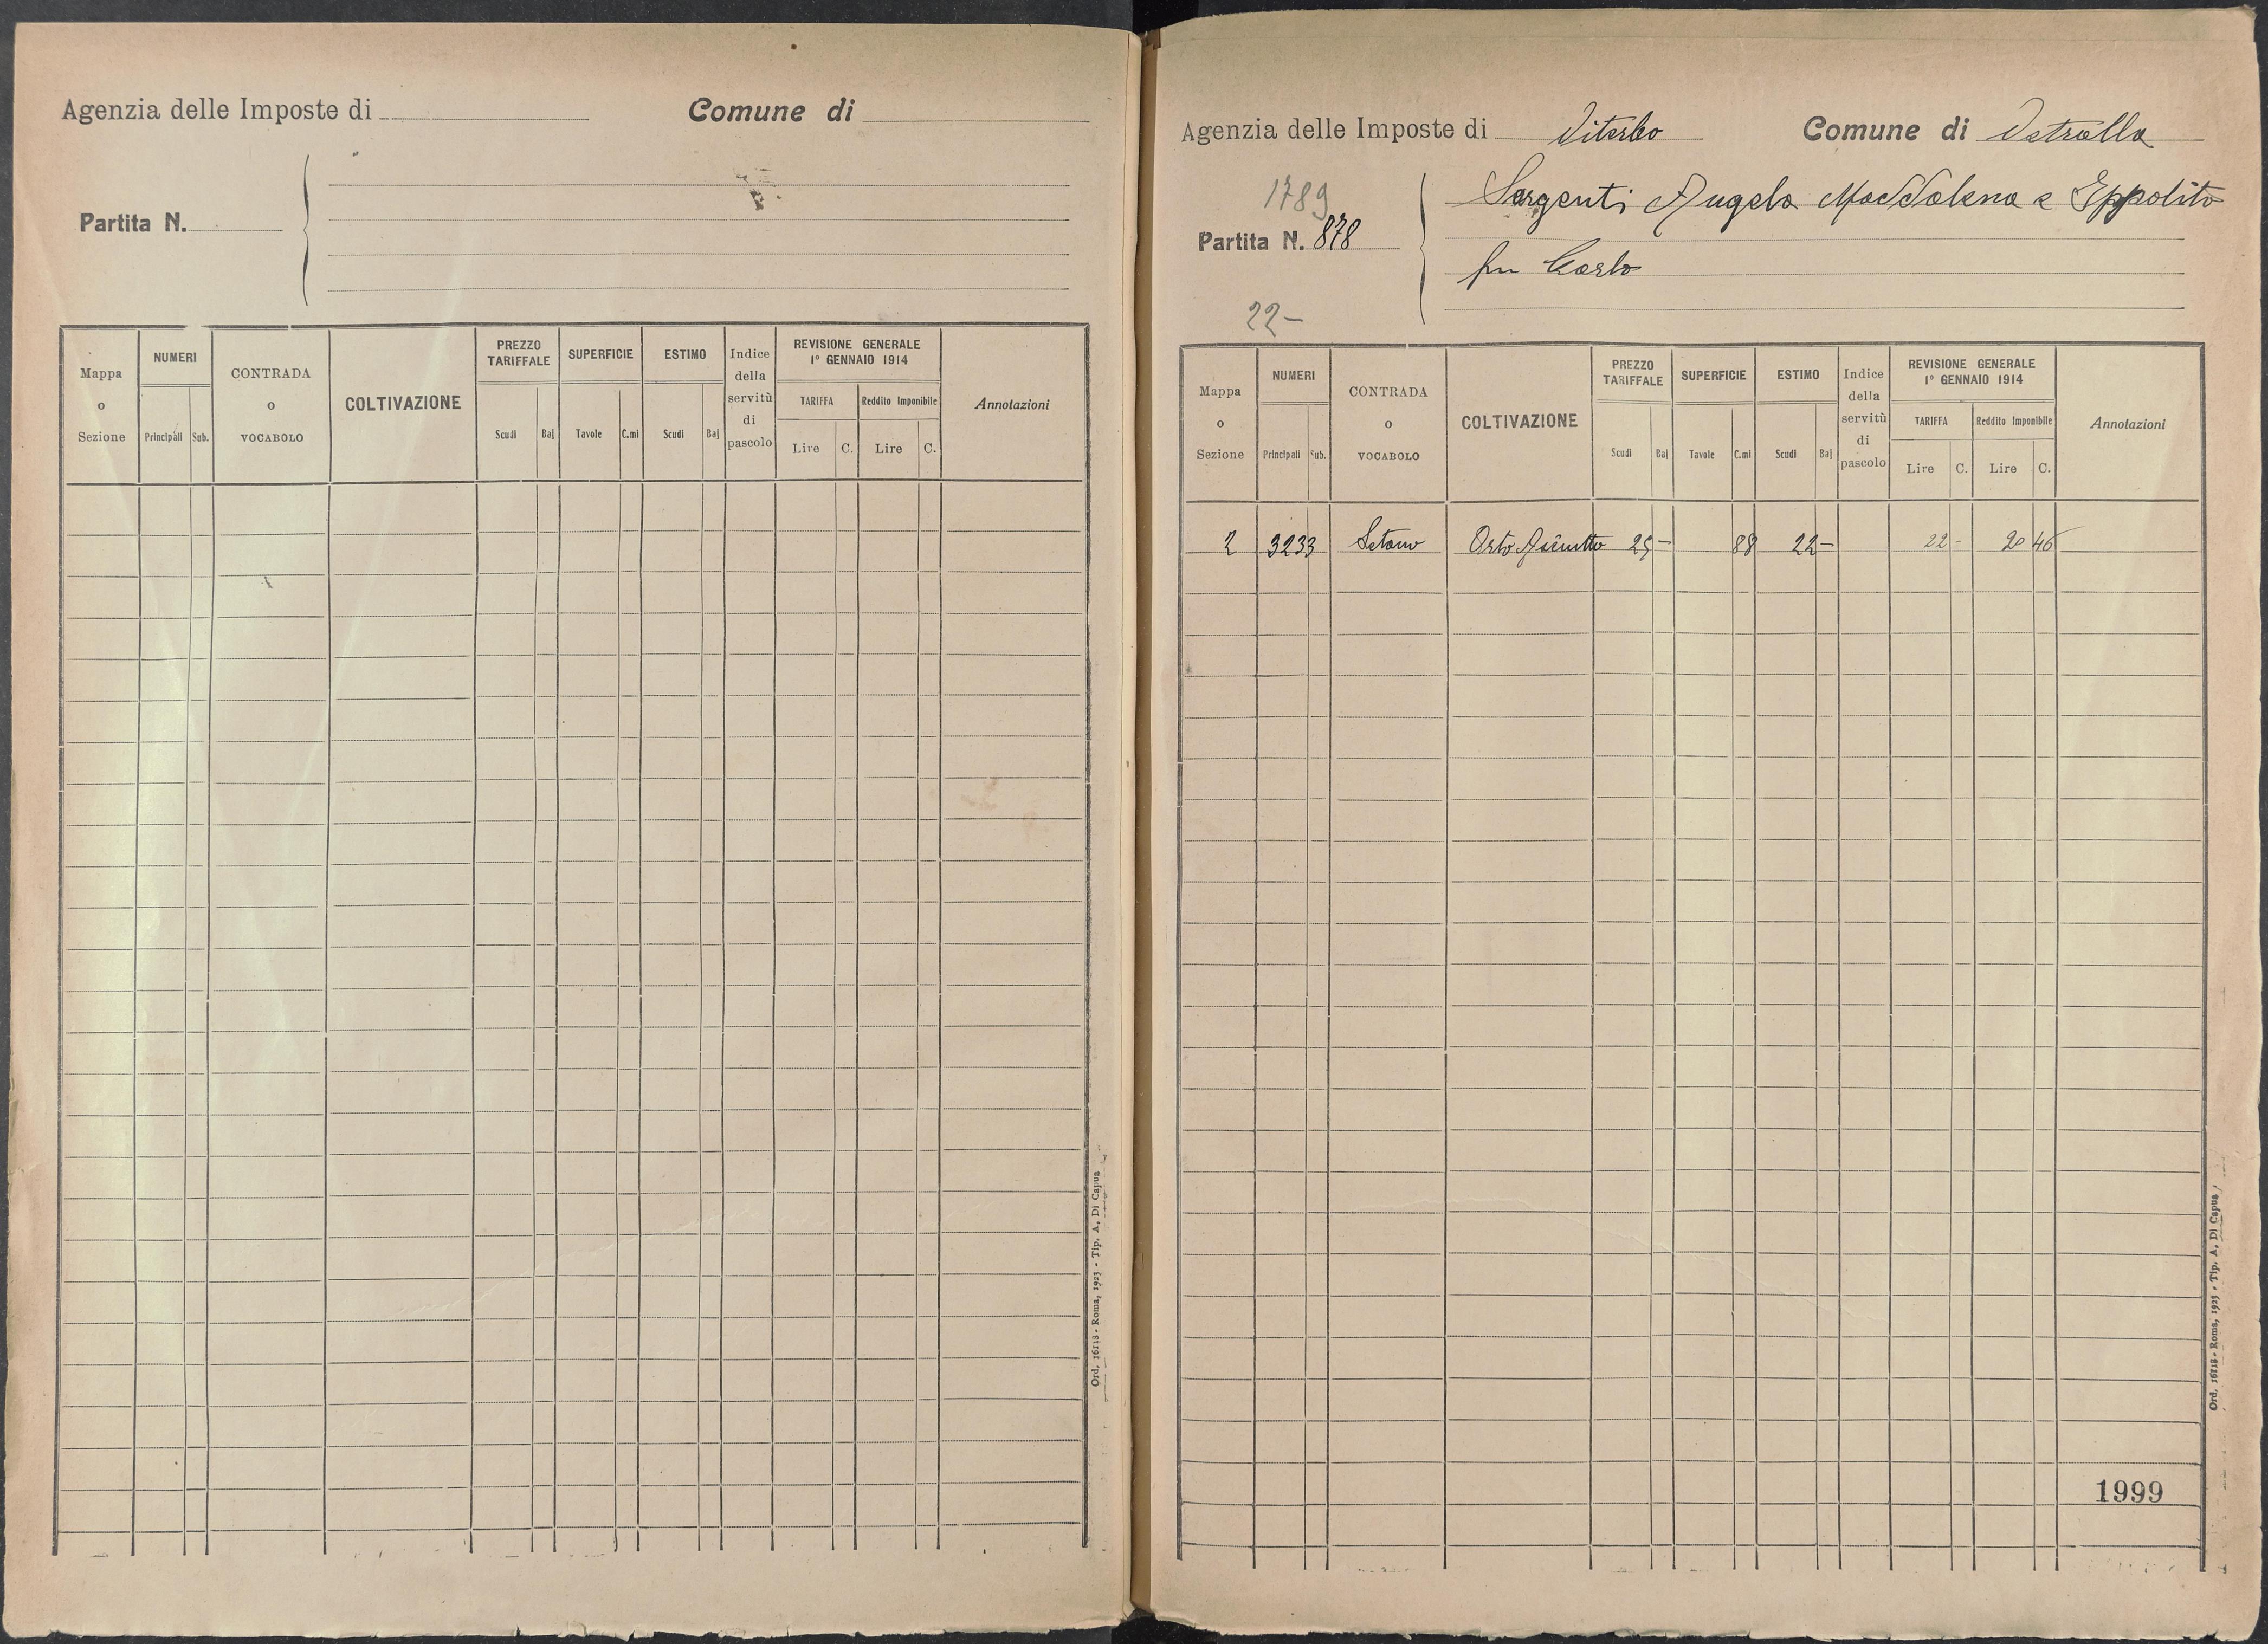 Agenzia delle Imposte di
Comune di
Partita N.
Mappa o Sezione
NUMERI
Principali
Sub.
CONTRADA o VOCABOLO
COLTIVAZIONE
PREZZO TARIFFALE
Scudi
Baj
SUPERFICIE
Tavole
C.mi
ESTIMO
Scudi
Baj
Indice della servitù di pascolo
REVISIONE GENERALE 1º GENNAIO 1914
TARIFFA
Lire
C.
Reddito Imponibile
Lire
C.
Annotazioni
Ord. 16118 - Roma, 1923 - Tip. A. Di Capua
Agenzia delle Imposte di Viterbo
Comune di Vetralla
1789
Partita N. 878
Sargenti Angela Maddalena e Eppolito
fu Carlo
22-
Mappa o Sezione
NUMERI
Principali
Sub.
CONTRADA o VOCABOLO
COLTIVAZIONE
PREZZO TARIFFALE
Scudi
Baj
SUPERFICIE
Tavole
C.mi
ESTIMO
Scudi
Baj
Indice della servitù di pascolo
REVISIONE GENERALE 1º GENNAIO 1914
TARIFFA
Lire
C.
Reddito Imponibile
Lire
C.
Annotazioni
2 3233 Orto Asciutto 25 - 88 22 - 22 - 20 46
1999
Ord. 16118 - Roma, 1923 - Tip. A. Di Capua